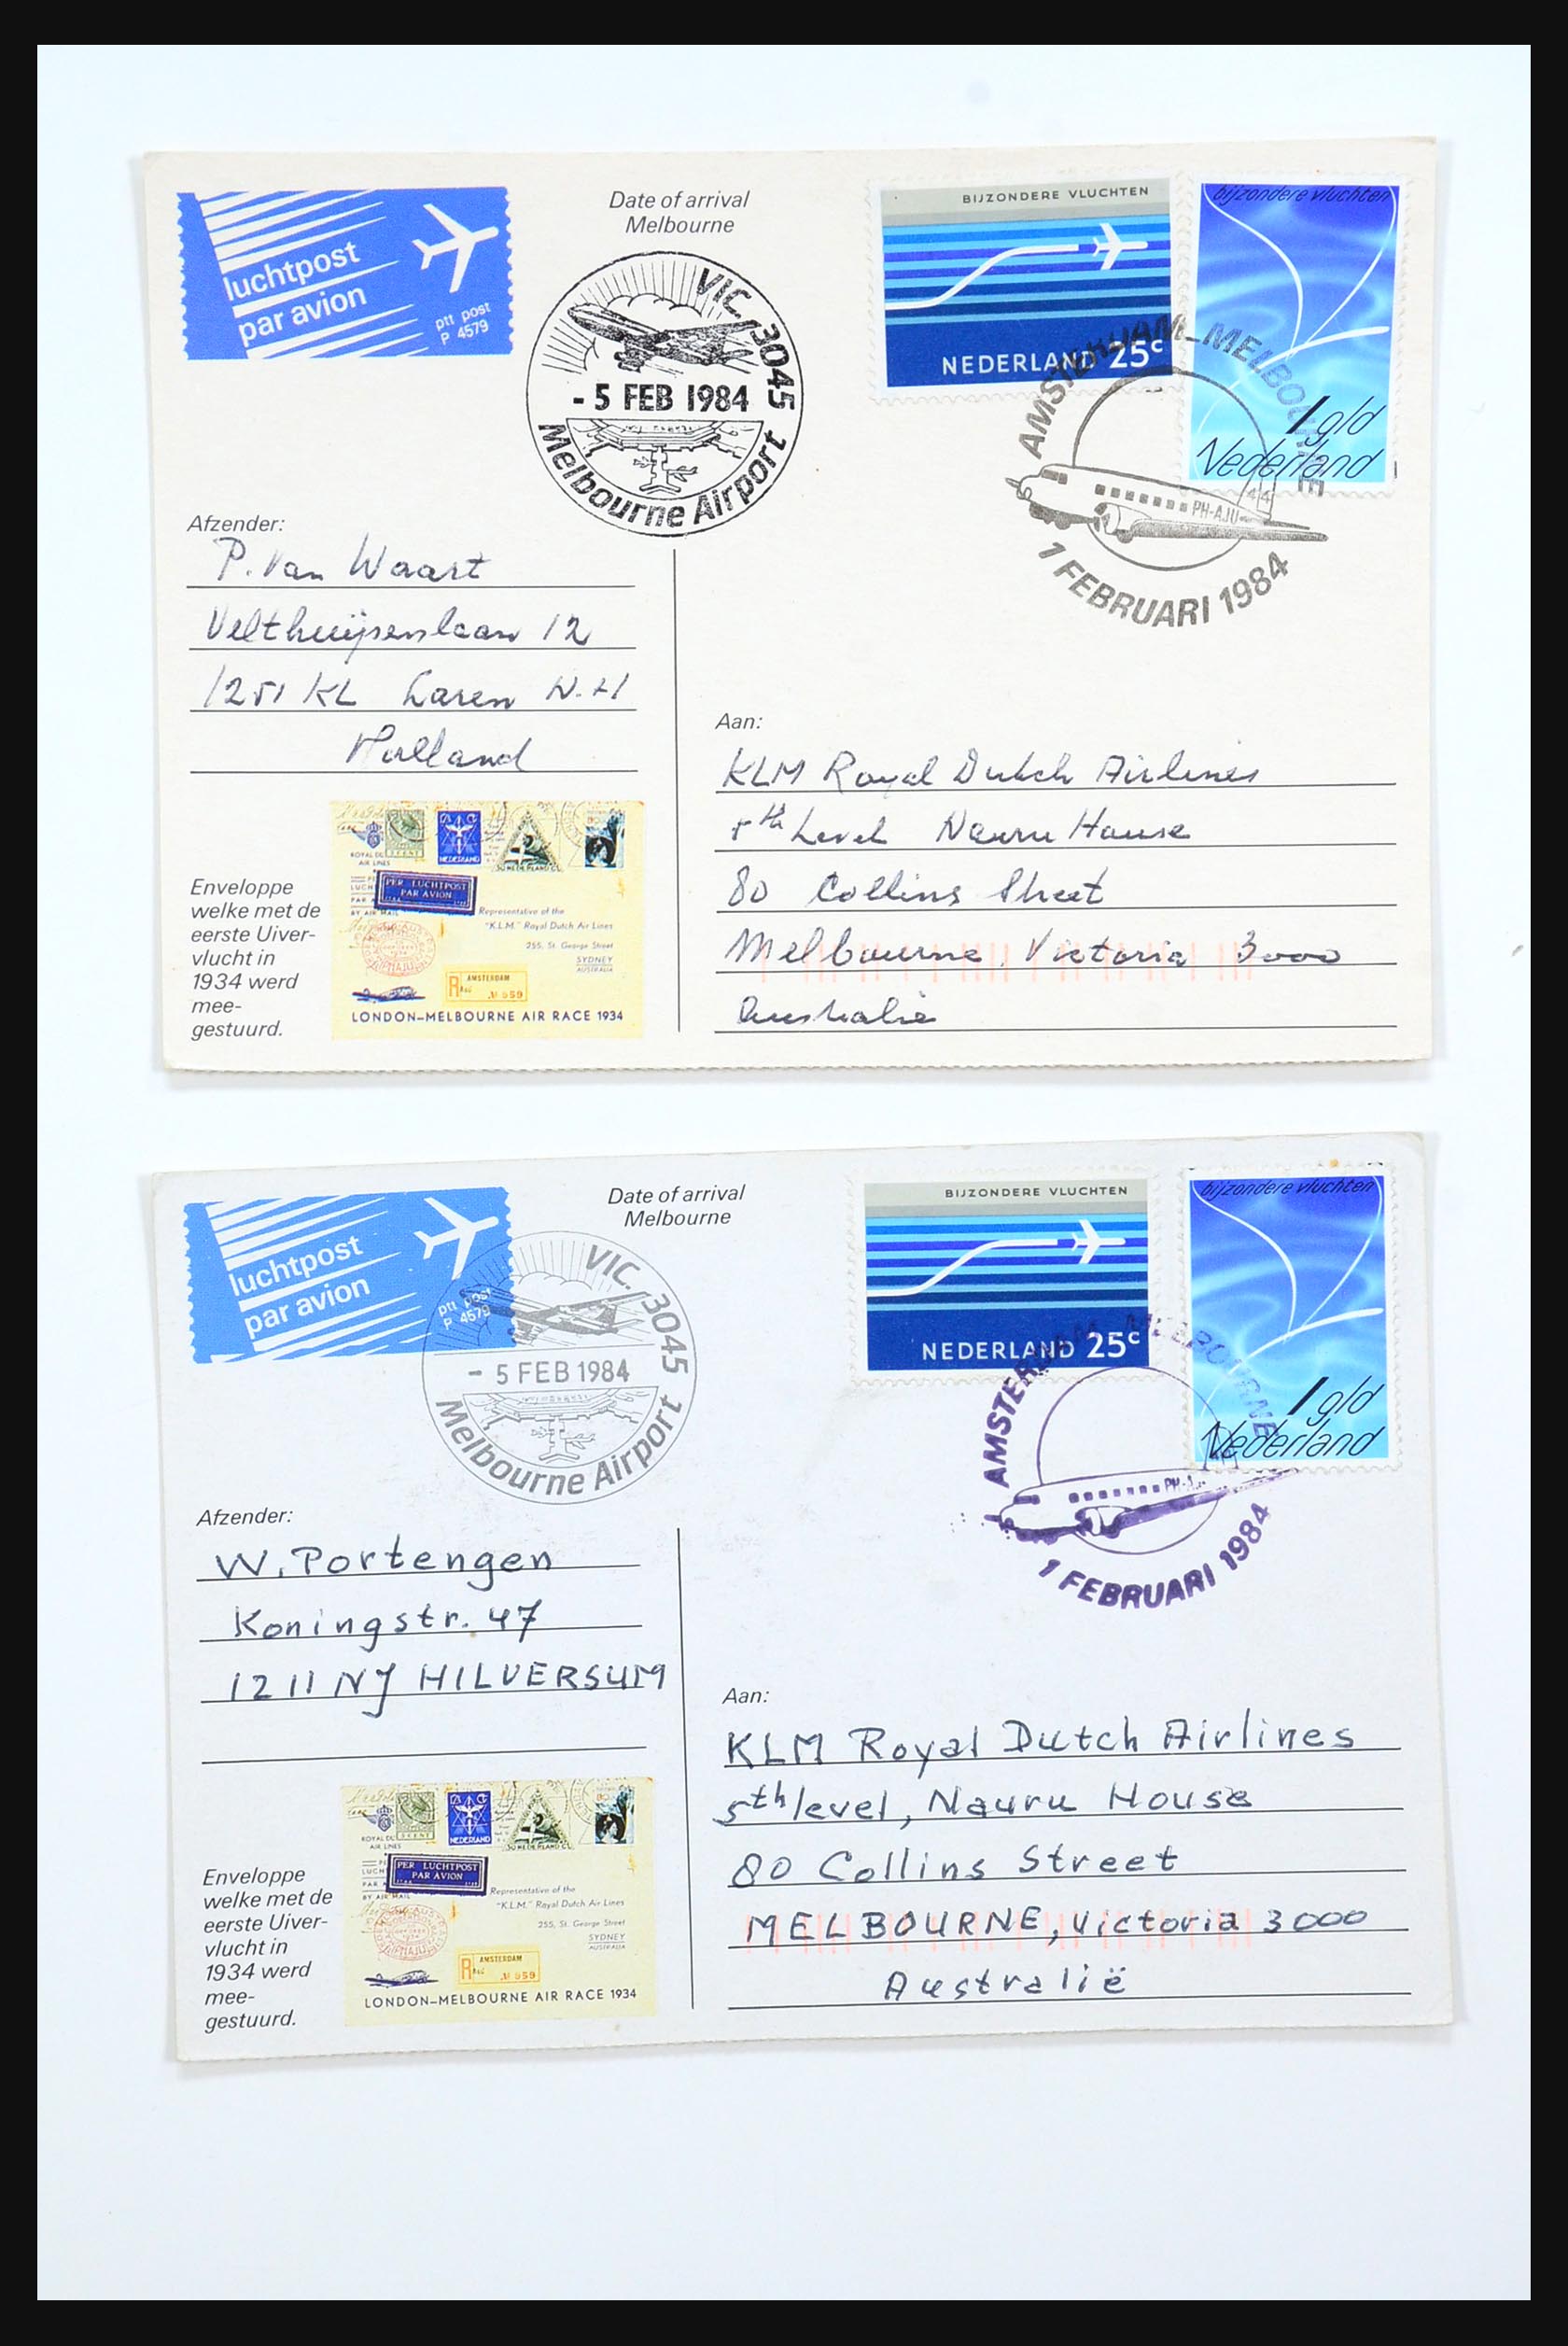 luchtpost
par avion
ptt post
P 4579
Date of arrival
Melbourne
VIC. 3045
- 5 FEB 1984
Melbourne Airport
BIJZONDERE VLUCHTEN
NEDERLAND 25c
bijzondere vluchten
1 gld
Nederland
AMSTERDAM - MELBOURNE
PH-AJU
44
1 FEBRUARI 1984
Afzender:
P. Van Waart
Velthuijsenlaan 12
1251 KL Laren N.H
Holland
Enveloppe
welke met de
eerste Uiver-
vlucht in
1934 werd
mee-
gestuurd.
ROYAL DU
AIR LINES
NEDERLAND
PER LUCHTPOST
PAR AVION
BY AIR MAIL
Representative of the
"K.L.M." Royal Dutch Air Lines
255, St. George Street
SYDNEY
AUSTRALIA
R AMSTERDAM
№ 959
LONDON–MELBOURNE AIR RACE 1934
Aan:
KLM Royal Dutch Airlines
5th Level Nauru House
80 Collins Street
Melbourne, Victoria 3000
Australie
luchtpost
par avion
ptt post
P 4579
Date of arrival
Melbourne
VIC. 3045
- 5 FEB 1984
Melbourne Airport
BIJZONDERE VLUCHTEN
NEDERLAND 25c
bijzondere vluchten
1 gld
Nederland
AMSTERDAM MELBOURNE
1 FEBRUARI 1984
Afzender:
W. Portengen
Koningstr. 47
1211 NJ HILVERSUM
Enveloppe
welke met de
eerste Uiver-
vlucht in
1934 werd
mee-
gestuurd.
ROYAL DU
AIR LINES
NEDERLAND
PER LUCHTPOST
PAR AVION
BY AIR MAIL
Representative of the
"K.L.M." Royal Dutch Air Lines
255, St. George Street
SYDNEY
AUSTRALIA
R AMSTERDAM
№ 959
LONDON–MELBOURNE AIR RACE 1934
Aan:
KLM Royal Dutch Airlines
5th level, Nauru House
80 Collins Street
MELBOURNE, Victoria 3000
Australië